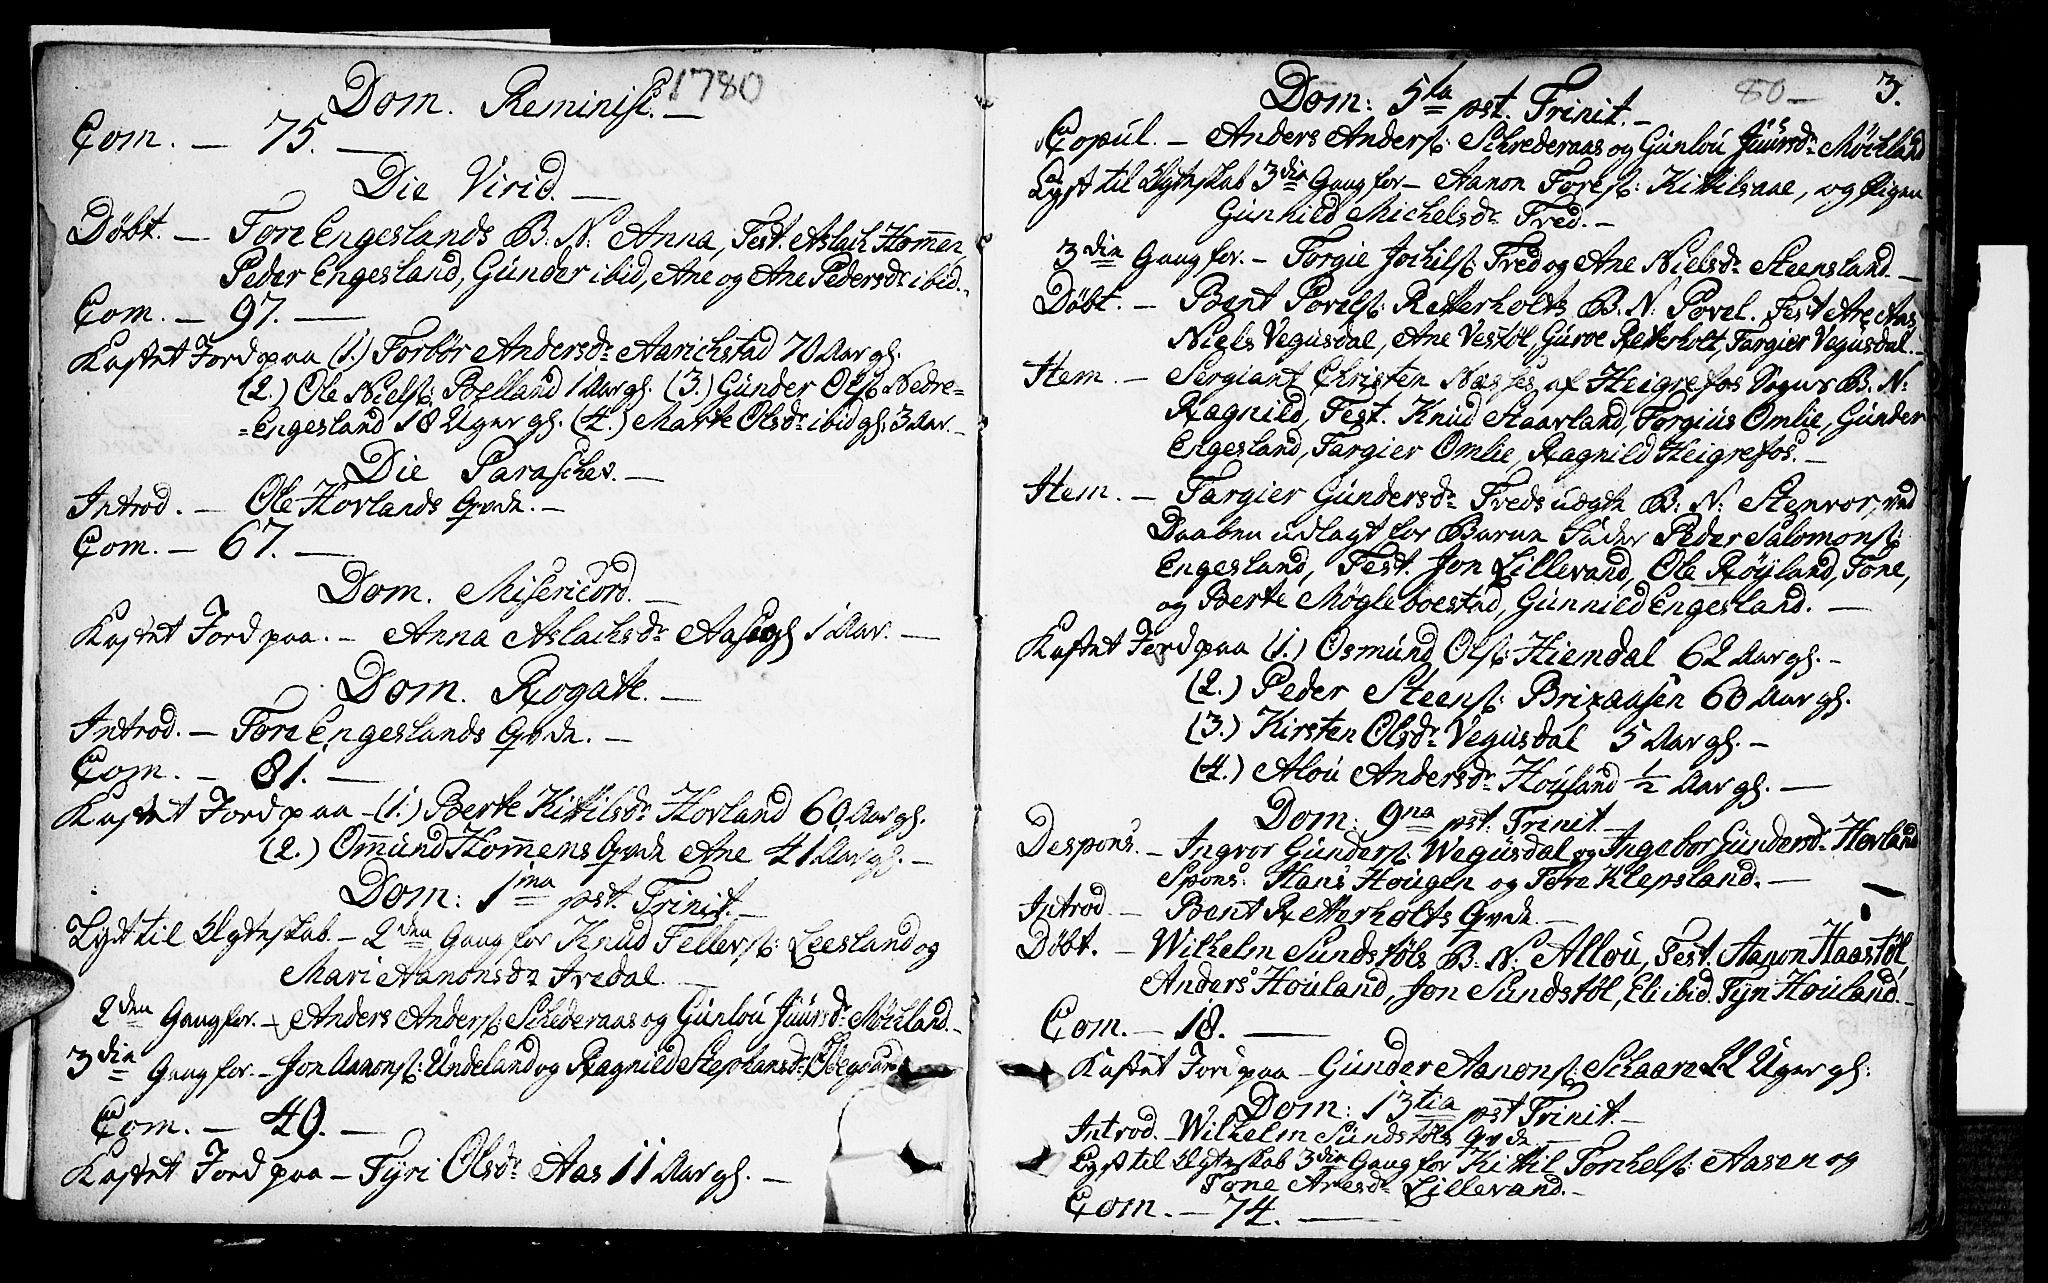 Dom. Reminisc. — 1780
Com. — 75. —
Die Virid. —
Döbt. — Tore Engeslands B: N: Anna, Test. Aslach Homen,
Peder Engesland, Gunder ibid, Ane og Ane Pedersdr ibid. -
Com. — 97. —
Kastet Jord paa (1.) Torbör Andersdr Aarichstad 70 Aar gl.
(2.) Ole Nielss: Belland 1 Aar gl. (3.) Gunder Olss: Nedre=
=Engesland 18 Uger gl. (4.) Marte Olsdr ibid gl. 3 Aar. —
Die Parascheu. —
Introd. — Ole Hovlands Qvde. —
Com. — 67. —
Dom. Misericord. —
Kastet Jord paa. — Anna Aslachsdr Aasen gl 1 Aar. —
Dom. Rogate. —
Introd. — Tore Engeslands Qvde. —
Com. — 81. —
Kastet Jord paa — (1.) Berte Kittilsdr Hovland 60 Aar gl.
(2.) Omund Homens Qvde Ane 41 Aar gl. —
Dom: 1ma pst. Trinit. —
Lyst til Ægteskab. — 2den Gang for Knud Tellefss: Leesland og
Mari Aanonsdr Iredal. —
2den Gang for. — Anders Anderss: Schederaas og Gunlou Juursdr Möchland. —
3die Gang for. — Jon Aanonss: Undeland og Ragnild Stephansdr Ödegaard
Com. — 49. —
Kastet Jord paa — Tyri Olsdr Aas 11 Aar gl. —
80 — 3.
Dom: 5ta pst. Trinit. —
Copul. — Anders Anderss: Schrederaas og Gunlou Juursdr Möchland
Lyst til Ægteskab 3die Gang for — Aanon Toress: Kittilsaae, og Pigen
Gunnild Michelsdr Tred. —
3die Gang for. — Torgie Jochilss: Tred og Ane Nielsdr Steensland. —
Döbt. — Bent Povelss: Retterholts B. N: Povel. Test Are Aas
Niels Vegusdal, Ane Vestöl, Guroe Retterholt, Targier Vegusdal. —
Item. — Sergiant Christen Næsses af Heigrefos Sogns B. N:
Ragnild, Test. Knud Staarland, Torgius Omlie, Gunder
Engesland, Targier Omlie, Ragnild Heigrefos. —
Item. — Targier Gundersdr Treds uægte B: N: Stenvor, ved
Daaben udlagt for Barne Fader Peder Salomonss:
Engesland, Test. Jon Lillevand, Ole Röyland, Tone,
og Berte Mögleboestad, Gunnild Engesland. —
Kastet Jord paa (1.) Osmund Olss: Hiemdal 62 Aar gl. —
(2.) Peder Steenss: Brixaasen 60 Aar gl.
(3.) Kirsten Olsdr Vegusdal 5 Aar gl. —
(4.) Alou Andersdr Houland ½ Aar gl. —
Dom: 9na pst: Trinit —
Despons. — Ingvor Gunderss: Wegusdal og Ingebor Gundersdr Hovland
Spons: Hans Hougen og Tore Klepsland. —
Introd. — Bent Retterholts Qvde. —
Döbt. — Wilhelm Sundstöls B: N: Allou, Test. Aanon Haastöl,
Anders Houland, Jon Sundstöl, Eli ibid, Tyri Houland. —
Com. — 18. —
Kastet Jord paa — Gunder Aanonss: Schaare 22 Uger gl:
Dom: 13tia pst Trinit. —
Introd. — Wilhelm Sundstöls Qvde. —
Lyst til Ægteskab 3die Gang for Kittil Torchelss: Aasen og
Tone Aresdr Lillevand. —
Com. — 74. —